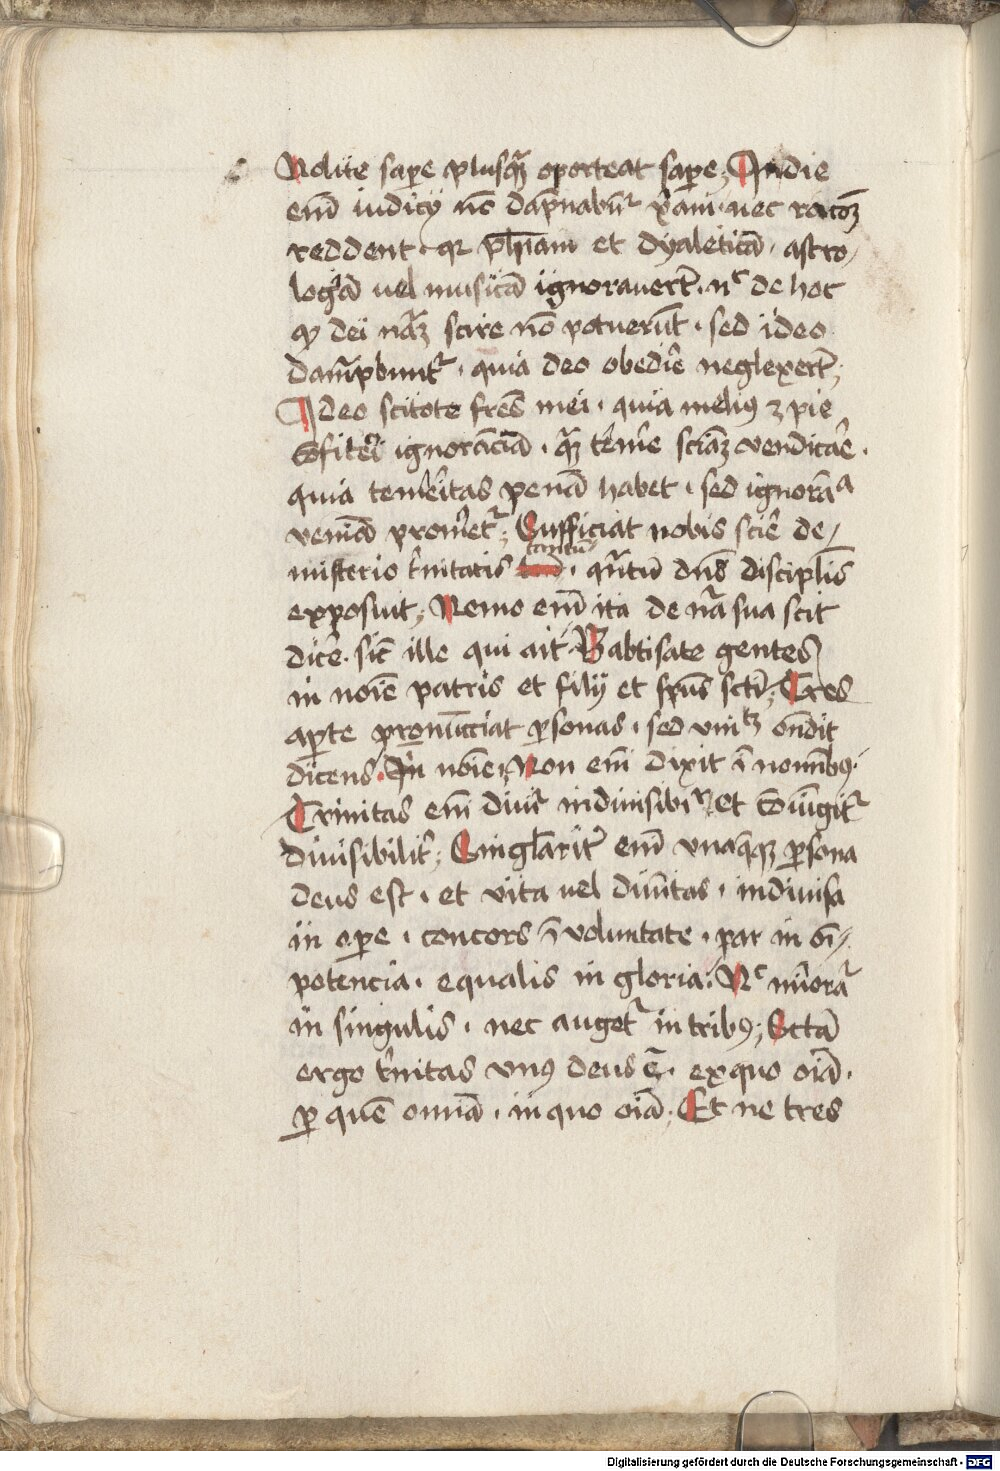 Nolite sape̅ plusq̅ȝ oporteat sape̅; In die
em̅ iudicij no̅ da̅pnabu̅r xp̅iani nec raco̅ȝ
reddent · qr ph̅iam et dyaletica̅ · astro/
logia̅ uel musica̅ ignorauert̅ · nc de hoc
ꝙ dei na̅ȝ scire no̅ potueru̅t · sed ideo
dampbunt̅ · quia deo obedie̅ neglexert̅;
Ideo scitote fres̅ mei · quia meliꝰ ȝ pie
Co̅fite̅i ignora̅cia̅ · qȝ̅ teme̅ scia̅ȝ vendicae̅ ·
quia teme̅itas pena̅ habet · sed ignora̅a
venia̅ promet̅; Sufficiat nobis scie̅ de/
misterio t̅nitatis tantu̅ · qn̅tu̅ dn̅s disciplis̅
exposuit; Nemo em̅ ita de na̅ sua scit
dice̅ · sic̅ ille qui ait Babtisate gentes
in noie̅ patris et filij et spu̅s scti̅; Tres
ap̅te pronu̅cciat p̅sonas · sed vnitȝ on̅dit
dicens · In noie̅ Non em̅ dixit i̅ nomi̅bꝰ ·
Trinitas em̅ diui̅ indiuisibil̅r et Co̅iu̅git̅
diuisibilit̅; Singlarit̅ em̅ vnaqq̅ȝ p̅sona
deus est · et vita uel diui̅tas · indiuisa
in ope̅ · concors i̅ voluntate · par in oi̅/
potencia · equalis in gloria; Nc minora̅
in singulis · nec auget̅ in tribꝰ; Scta̅
ergo t̅nitas vnꝰ deus e̅ · ex quo oia̅ ·
p̅ que̅ omia̅ · in quo oia̅; Et ne tres
Digitalisierung gefördert durch die Deutsche Forschungsgemeinschaft - DFG